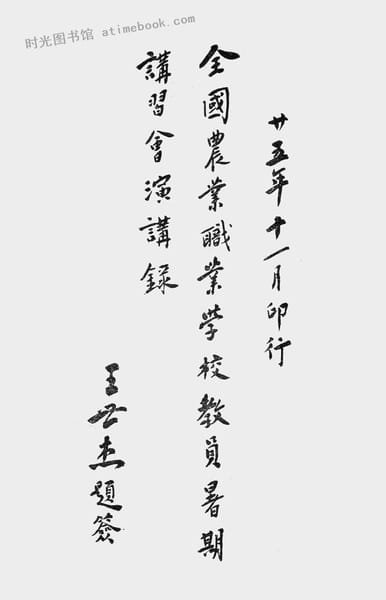 时光图书馆 atimebook.com
廿五年十一月印行
全國農業職業學校教員暑期
講習會演講錄
王世杰題簽